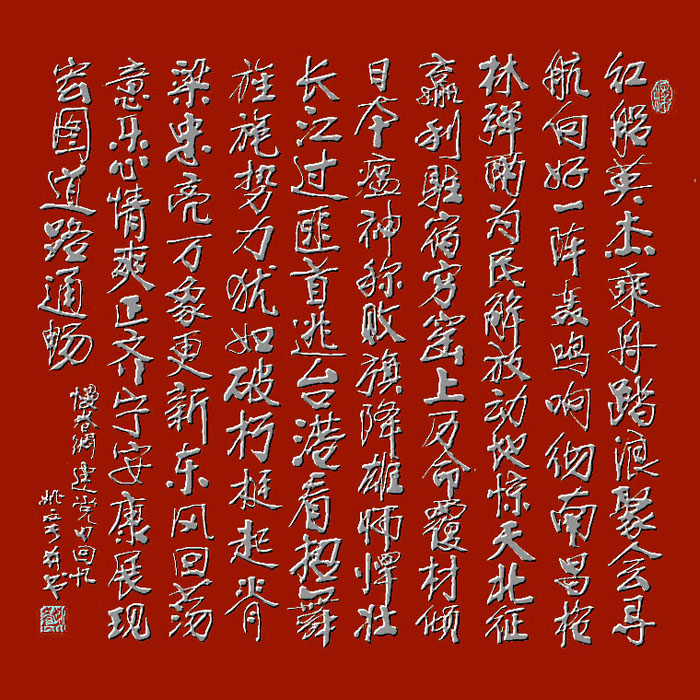 红船英杰乘舟踏浪聚会寻
航向好一阵轰鸣响彻南昌枪
林弹雨为民解放动地惊天北征
赢利驻宿穷窑上历命覆材倾
日本瘟神称败旗降雄师悍壮
长江过匪首逃台港看扭舞
旌旄势力犹如破朽挺起脊
梁忠亮万象更新东风回荡
意乐心情爽正齐宁安康展现
宏图道路通畅
慢卷绸 建党日回忆
姚 书